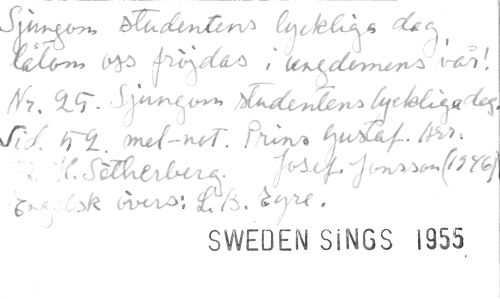 Sjungom studentens lyckliga dag,
låtom oss fröjdas i ungdomens vår!
Nr. 25. Sjungom studentens lyckliga dag.
Sid. 52. mel-not. Prins Gustaf. Arr.
H. Sätherberg. Josef Jonsson (1946)
Engelsk övers: L. B. Eyre.
SWEDEN SiNGS 1955